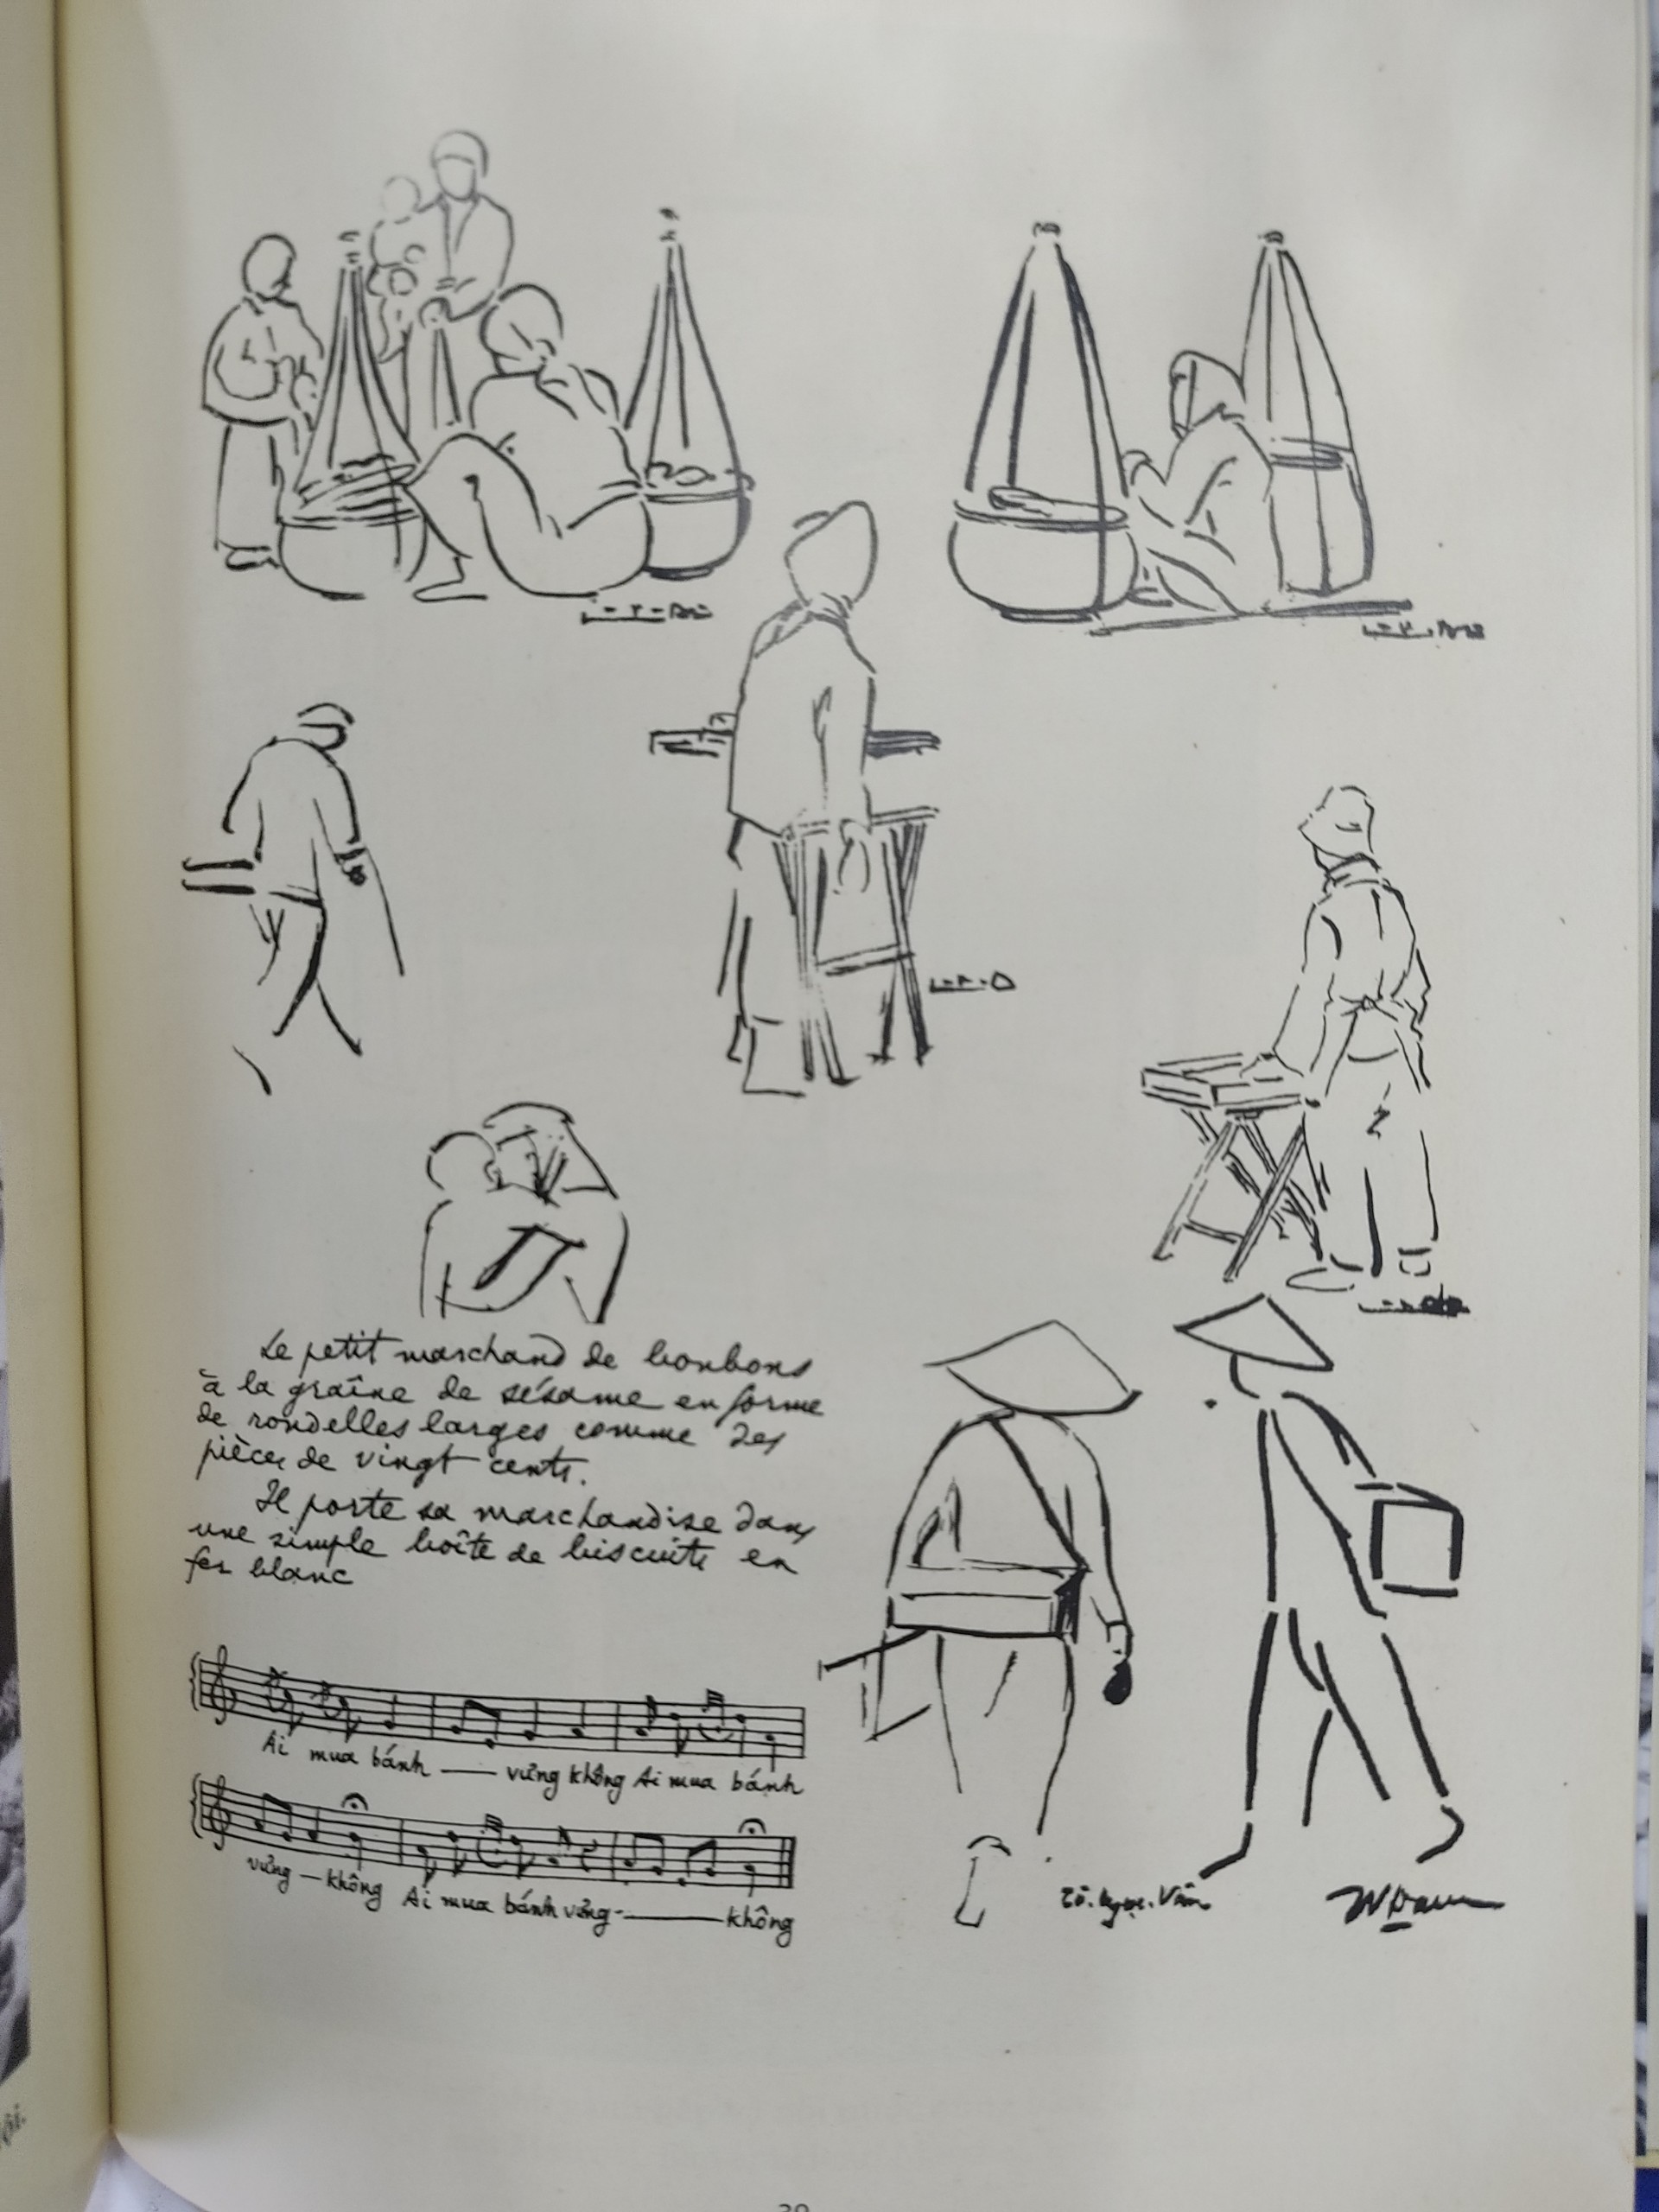 Le petit marchand de bonbons
à la graîne de sésame en forme
de rondelles larges comme des
pièces de vingt cents.
Il porte sa marchandise dans
une simple boîte de biscuits en
fer blanc
Ai mua bánh — vừng không Ai mua bánh
vừng — không Ai mua bánh vừng — không
Tô. Ngọc. Vân
39